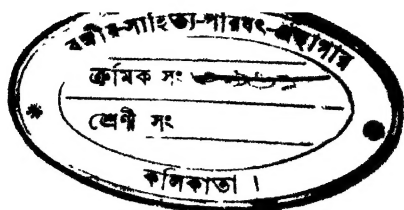 বঙ্গীয়-সাহিত্য-পারষৎ-গ্রন্থাগার
ক্রমিক সং
শ্রেণী সং
কলিকাতা ।